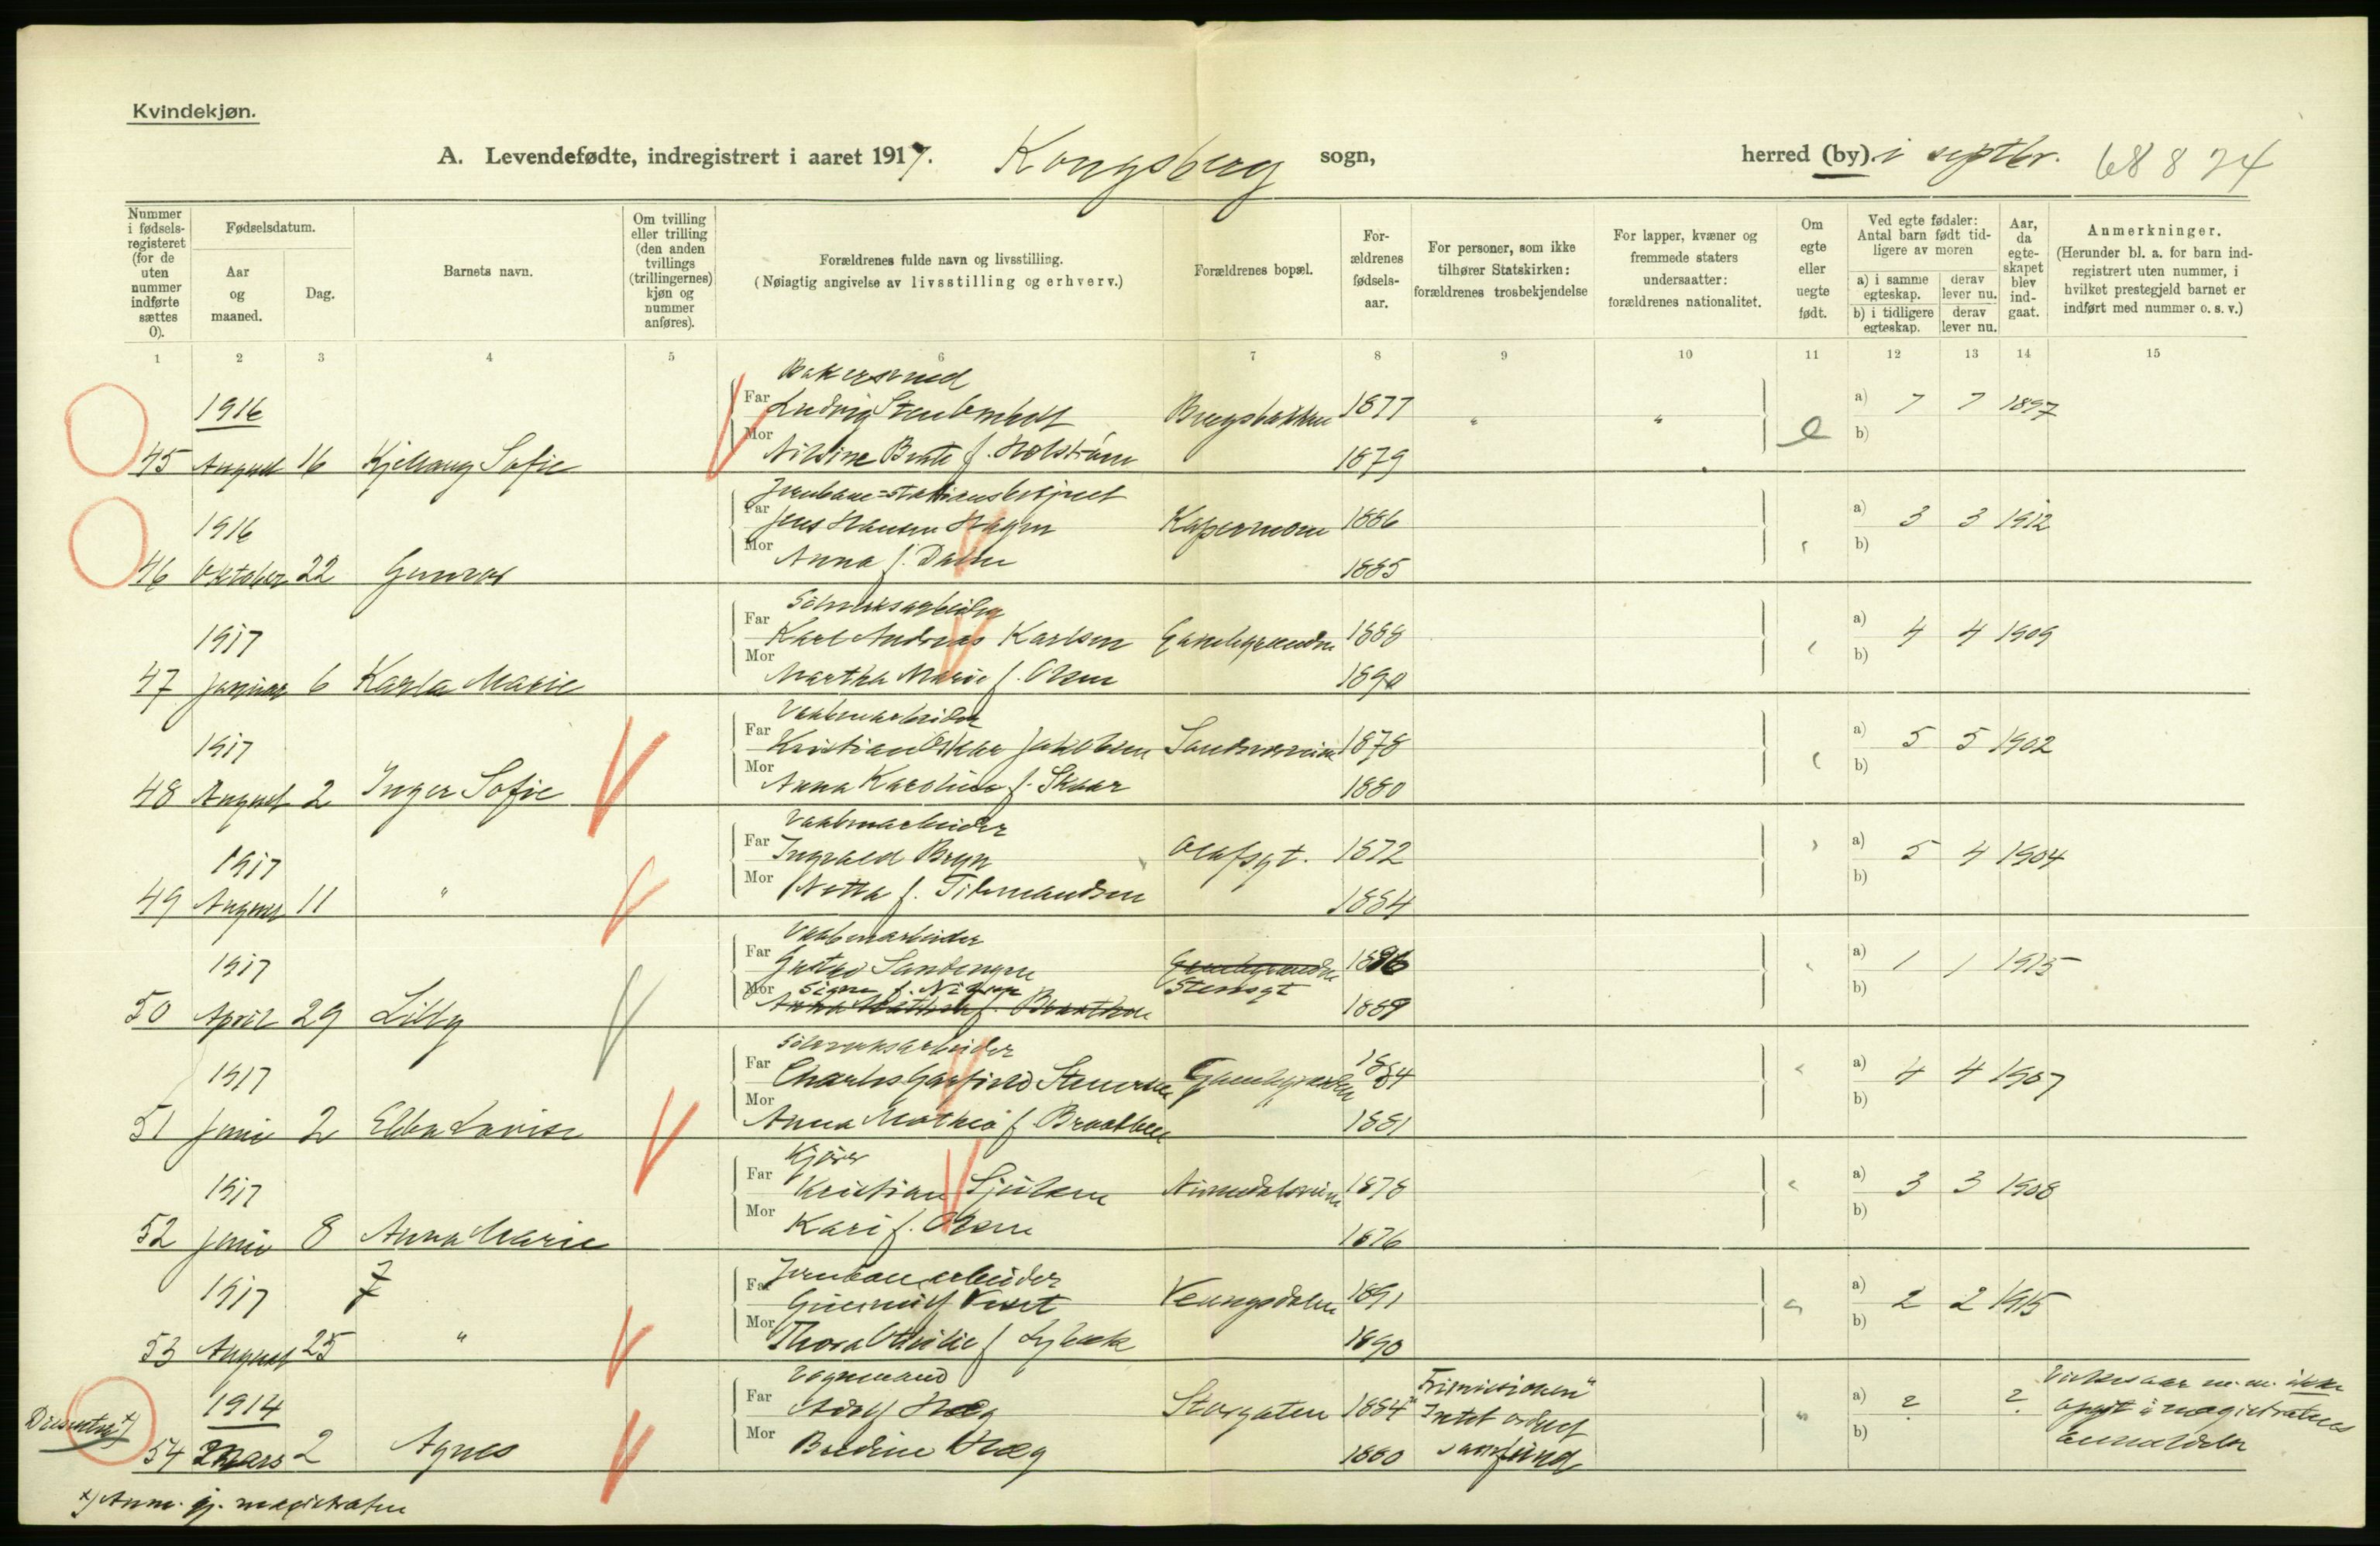 Kvindekjøn.
A. Levendefødte, indregistrert i aaret 1917. Kongsberg sogn, herred (by). i septbr. 68 8 74
Nummer i fødsels-registeret (for de uten nummer indførte sættes 0).
Fødselsdatum.
Aar og maaned.
Dag.
Barnets navn.
Om tvilling eller trilling (den anden tvillings (trillingernes) kjøn og nummer anføres).
Forældrenes fulde navn og livsstilling.
(Nøiagtig angivelse av livsstilling og erhverv.)
Forældrenes bopæl.
For-ældrenes fødsels-aar.
For personer, som ikke tilhører Statskirken: forældrenes trosbekjendelse
For lapper, kvæner og fremmede staters undersaatter: forældrenes nationalitet.
Om egte eller uegte født.
Ved egte fødsler: Antal barn født tid-ligere av moren
a) i samme egteskap.
derav lever nu.
b) i tidligere egteskap.
derav lever nu.
Aar, da egte-skapet blev ind-gaat.
Anmerkninger.
(Herunder bl. a. for barn ind-registrert uten nummer, i hvilket prestegjeld barnet er indført med nummer o. s. v.)
1 2 3 4 5 6 7 8 9 10 11 12 13 14 15
Bakersvend
1916 Far Ludvig 1877 " " e a) 7 7 1897
Mor b)
45 August 16 Kjellaug Sofie f. Holstrøm 1879
Jernbane=stationsbetjent
1916 Far Jens Hansen Hagen Kapermoen 1886 a) 3 3 1912
Mor b)
46 Oktober 22 Gunvor Anna f. 1885
Sölvverksarbeider
1917 Far Karl Andreas Karlsen 1888 a) 4 4 1909
Mor b)
47 Januar 6 Karla Marie Martha Marie f. Olsen 1890
Vaabenarbeider
1917 Far Kristian Oskar Jakobsen 1878 a) 5 5 1902
Mor b)
48 August 2 Inger Sofie Anna Karoline f. Skaar 1880
Vaabenarbeider
1917 Far Ingvald Bryn Olafsgt. 1872 a) 5 4 1904
Mor b)
49 August 11 " Netta f. Tidemandsen 1884
Vaabenarbeider
1917 Far Gustav 1886 a) 1 1 1915
Mor Signe f. Stengt b)
50 April 29 Lilly 1889
Sölvverksarbeider
1917 Far Charles Garfield 1884 a) 4 4 1907
Mor b)
51 Juni 2 Ebba Lovise Anna Mathea f. Braathen 1881
Kjører
1917 Far Kristian 1878 a) 3 3 1908
Mor b)
52 Juni 8 Anna Marie Kari f. Olsen 1876
Jernbanearbeider
1917 Far 1891 a) 2 2 1915
Mor b)
53 August 25 " Thora Othilie f. Lybeck 1890
Vognmand
1914 Far Adolf Hæg Storgaten 1884 "Frimissionen" a) 2 2
Dissenter x) Mor Intet ordnet b)
54 Mars 2 Agnes Bredine Hæg 1880 samfund
ikke
i magistratens
x) Anm. gj. magistraten